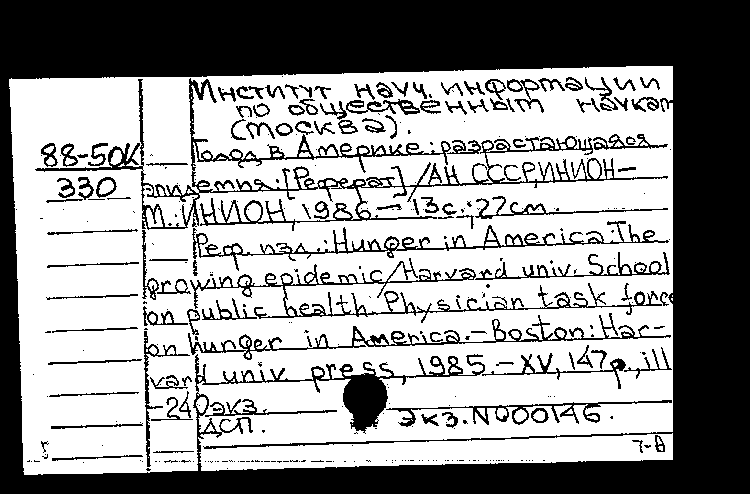 Институт науч. информации
по общественным наукам
(Москва).
88-50К Голод в Америке: разрастающаяся
330 эпидемия: [Реферат] / АН СССР, ИНИОН—
М.: ИНИОН, 1986.— 13с.; 27см.
Реф. изд.: Hunger in America: The
growing epidemic / Harvard univ. School
on public health. Physician task force
on hunger in America.— Boston: Har-
vard univ. press, 1985.— XV, 147p., ill
—240экз.
ДСП. Экз. N000146.